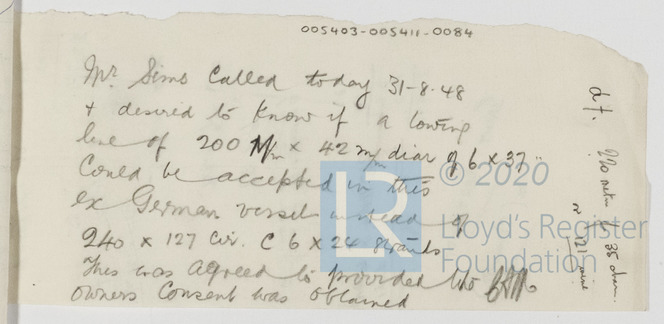 005403-005411-0084
Mr. Sims Called today 31-8-48
+ desired to know if a towing
line of 200 M/m × 42 m/m diar of 6 × 37
Could be accepted in this
ex German vessel instead of
240 × 127 Cir. C 6 × 24 strands
This was agreed to provided the
owners Consent was obtained
© 2020
LR
Lloyd's Register
Foundation